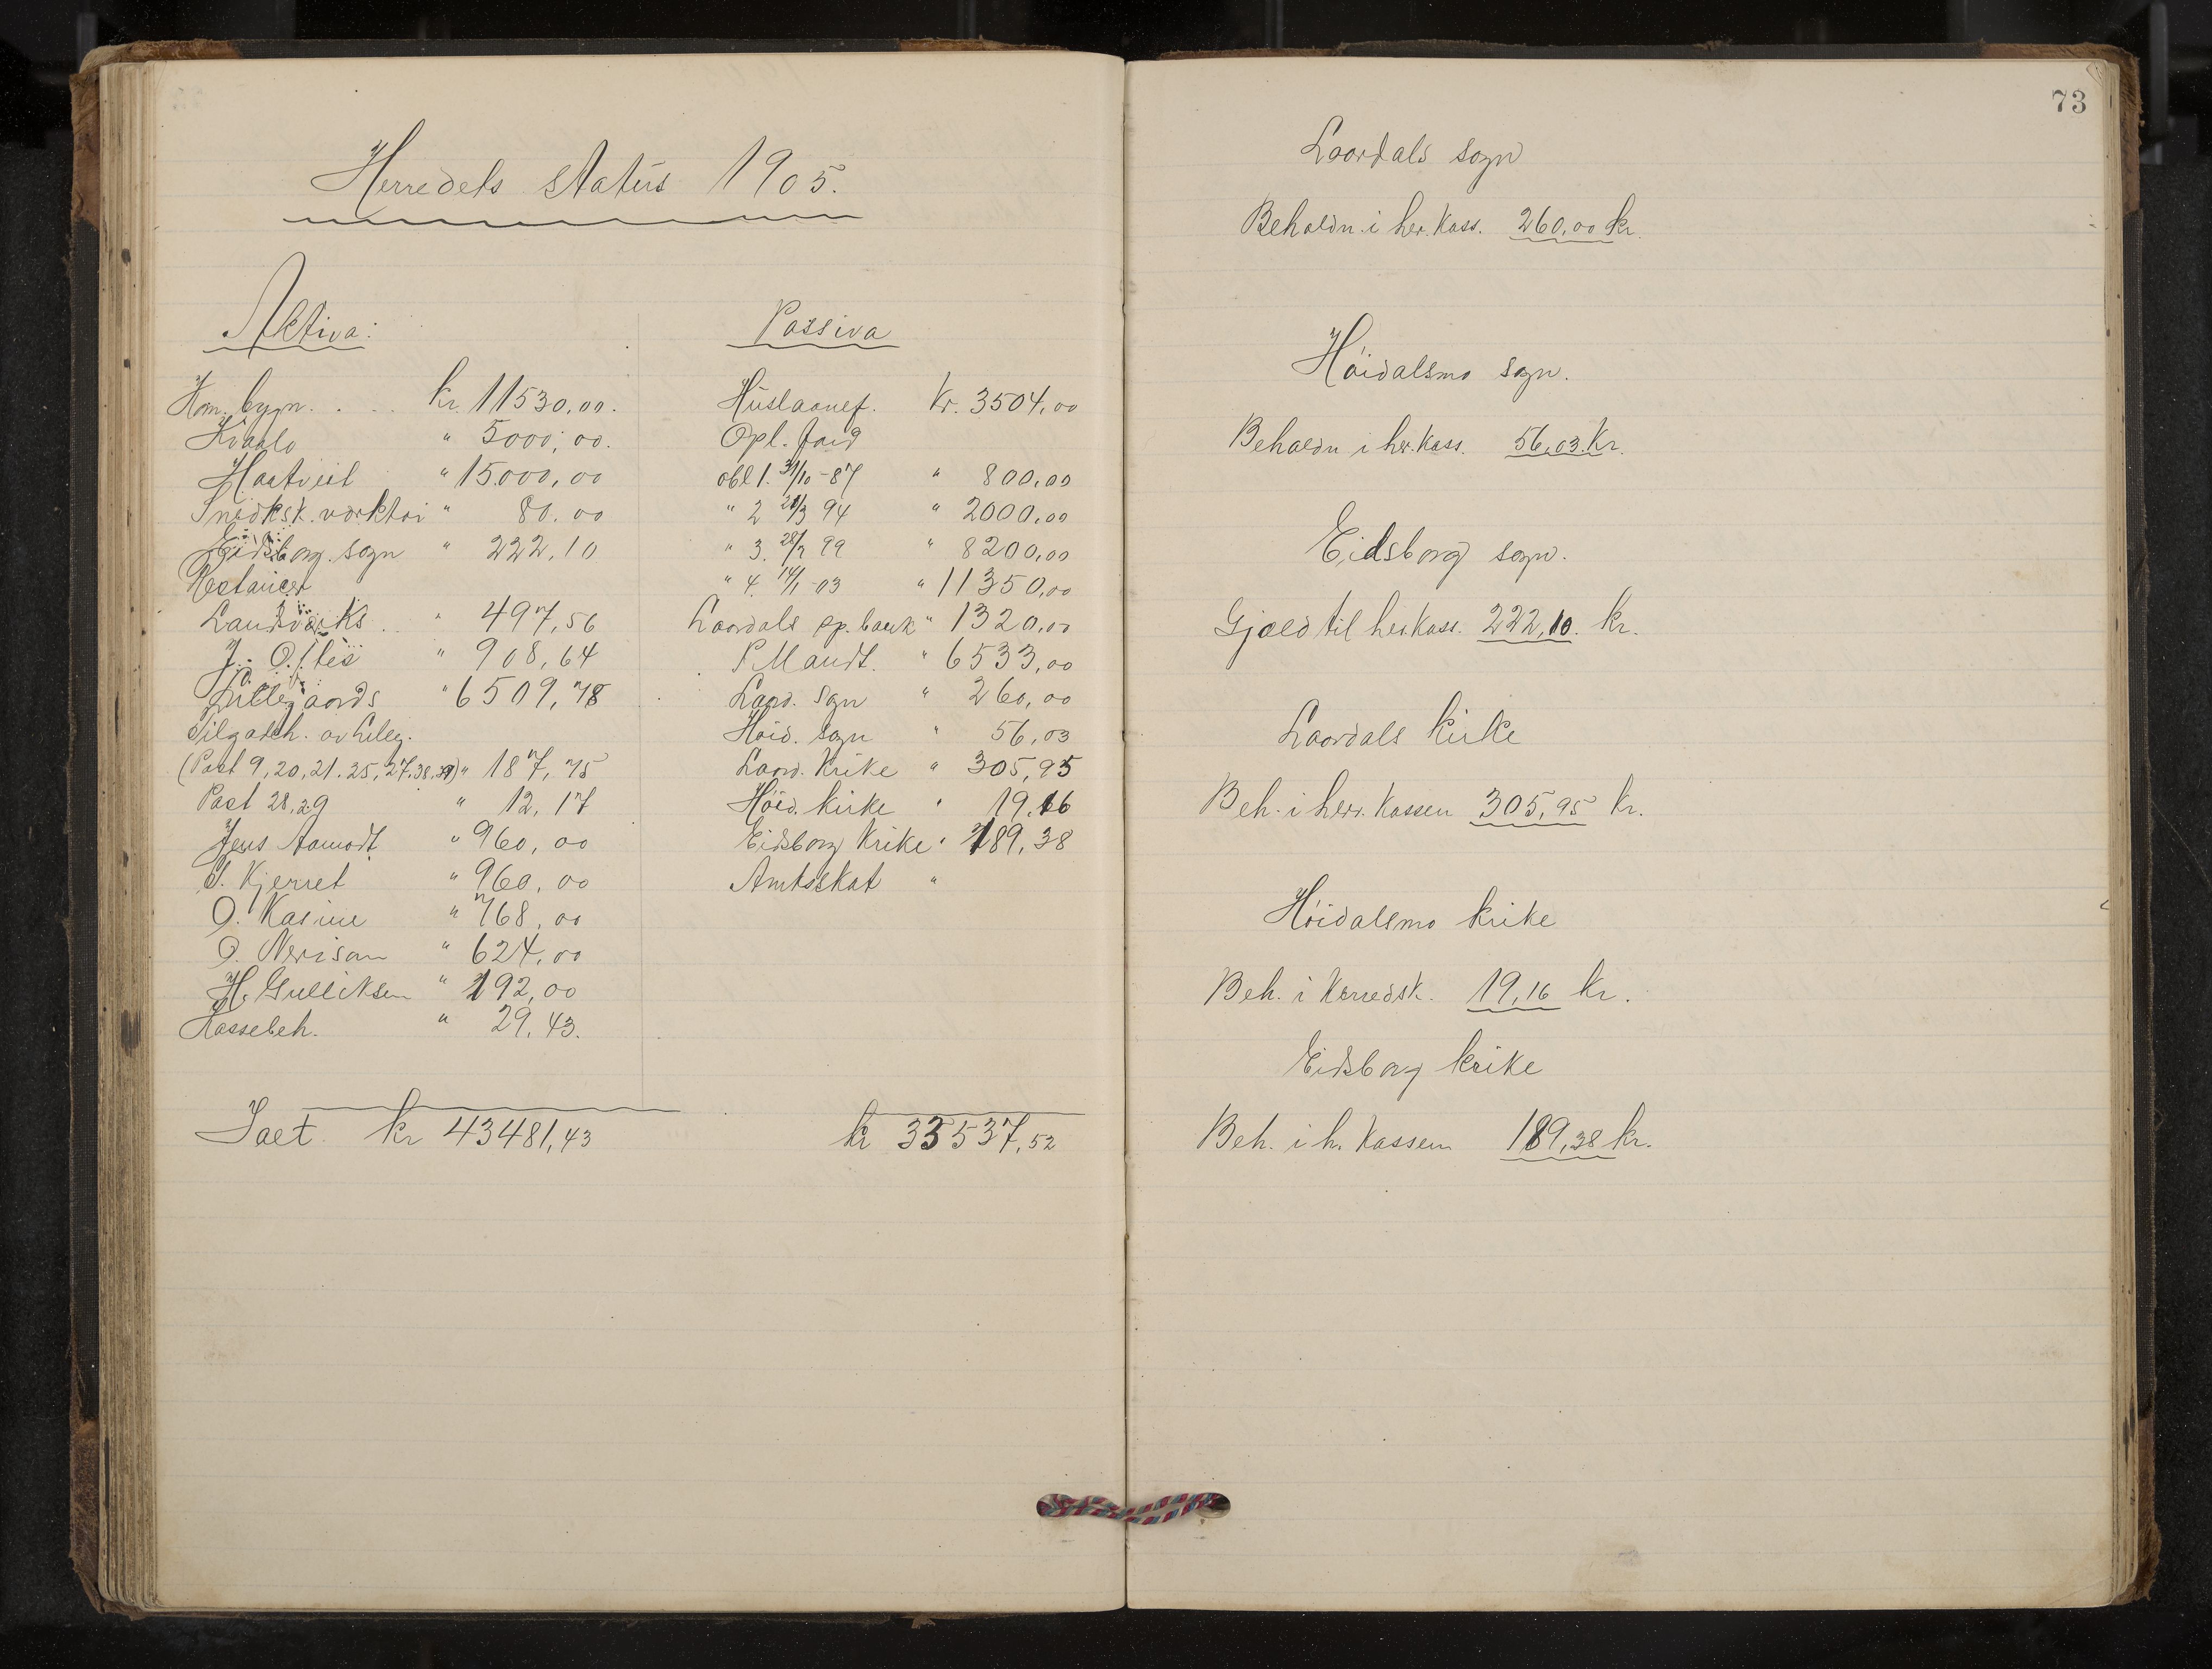 Herredets status 1905.
Aktiva:
Kom. bygn. . . . kr. 11530,00.
Kvaalo " 5000,00.
Haatveit " 15.000,00
Snedksk. værktøi " 80.00
Eidsborg. sogn " 222,10
Restancer
Landviks .. " 497,56
J. O. Ites " 908,64
Lillegaards " 6509,78
Tilgodeh. av Lilleg.
(Post 9, 20, 21. 25, 27. 38. 39) " 187,75
Post 28, 29 " 12,17
Jens Aamodt " 960,00
S. Kjerret " 960,00
O. Kasine " 768,00
O. Nerisan " 624,00
H. Gulliksen " 192,00
Kassebeh. " 29,43.
Saet. kr 43481,43
Passiva
Huslaanef. Kr. 3504,00
Opl. fond
obl 1. 31/10 - 87 " 800,00
" 2 94 " 2000,00
" 3. 99 " 8200,00
" 4. 14/1 - 03 " 11350,00
Laordals sp. bank " 1320,00
P Mandt. " 6533,00
Laard. sogn " 260,00
Höid. sogn " 56,03
Laard. Kirke " 305,95
Höid. kirke " 19,16
Eidsborg Kirke " 189,38
Amtsskat "
kr 33537,52
73
Laordals sogn
Beholdn. i her. Kass. 260,00 kr.
Höidalsmo sogn.
Beholdn i her. Kass. 56,03. Kr.
Eidsborg sogn.
Gjæld til her.kass. 222,10. kr.
Laordals kirke
Beh. i herr. Kassen 305,95 kr.
Höidalsmo kirke
Beh. i Herredsk. 19,16 kr.
Eidsborg kirke
Beh. i h. Kassen 189,38 kr.